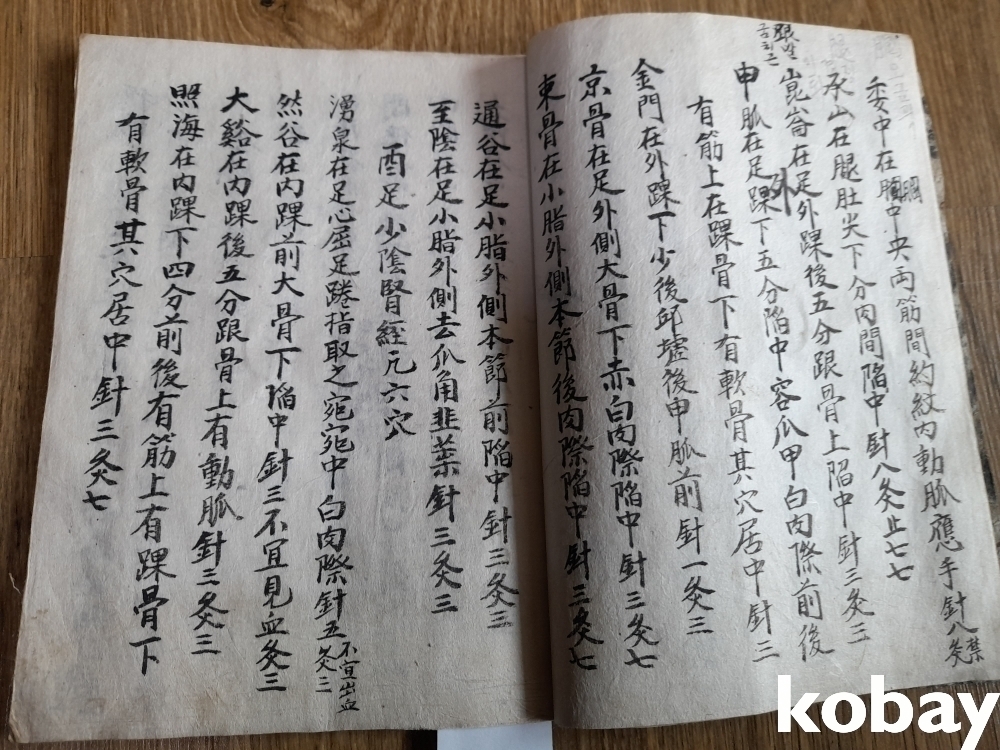 委中在膕中央両筋間約紋內動脈應手針八禁灸
承山在腿肚尖下分肉間陷中針八灸止七七
跟발금최근
崑崙在足外踝後五分跟骨上陷中針三灸三
申脈在足外踝下五分陷中容爪甲白肉際前後
有筋上在踝骨下有軟骨其穴居中針三
金門在外踝下少後邱墟後申脈前針一灸三
京骨在足外側大骨下赤白肉際陷中針三灸七
束骨在小脂外側本節後肉際陷中針三灸七
通谷在足小脂外側本節前陷中針三灸三
至陰在足小脂外側去爪角韭葉針三灸三
酉足少陰腎經凡六穴
湧泉在足心屈足踡指取之宛宛中白肉際針五不宜出血灸三
然谷在內踝前大骨下陷中針三不宜見血灸三
大谿在內踝後五分跟骨上有動脈針三灸三
照海在內踝下四分前後有筋上有踝骨下
有軟骨其穴居中針三灸七
kobay